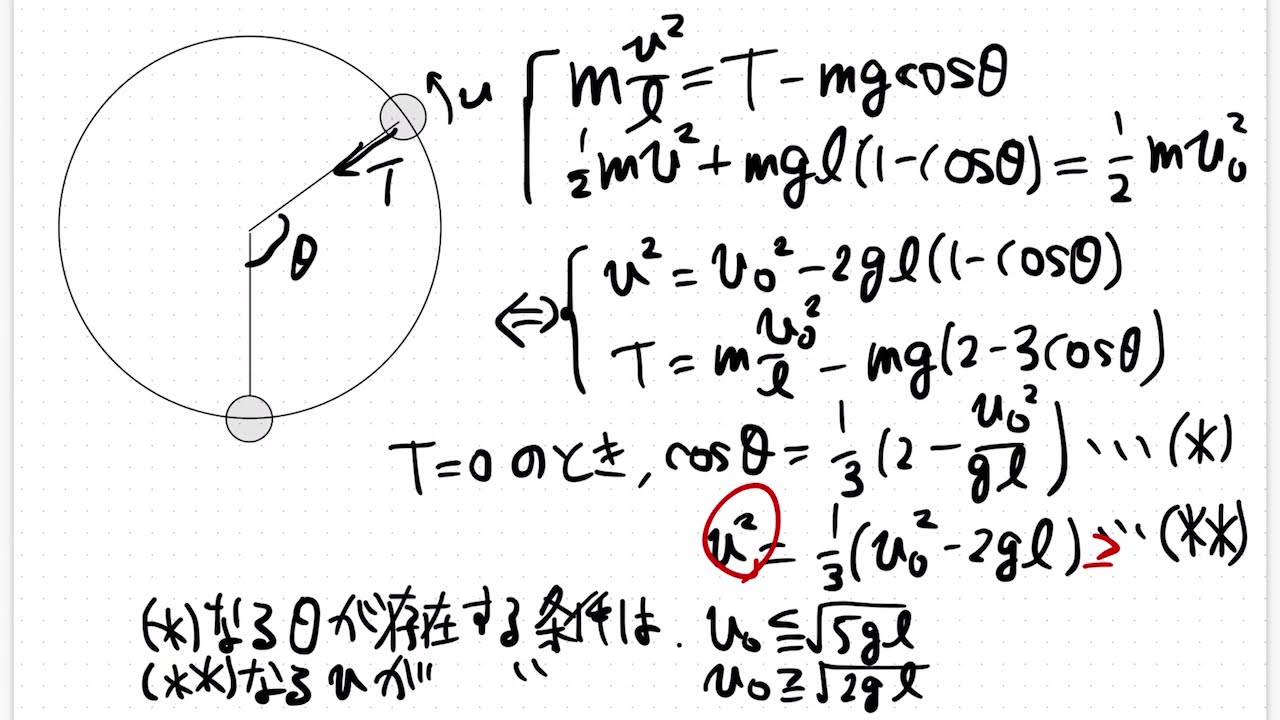 m v²/l = T - mg cosθ
1/2 mv² + mgl(1-cosθ) = 1/2 mv₀²
⇔ v² = v₀² - 2gl(1-cosθ)
T = m v₀²/l - mg(2-3cosθ)
T=0 のとき, cosθ = 1/3 (2 - v₀²/gl) … (*)
v² = 1/3 (v₀² - 2gl) ≥ … (**)
(*)なるθが存在する条件は. v₀ ≦ √5gl
(**)なるvが 〃 v₀ ≧ √2gl
v
T
θ